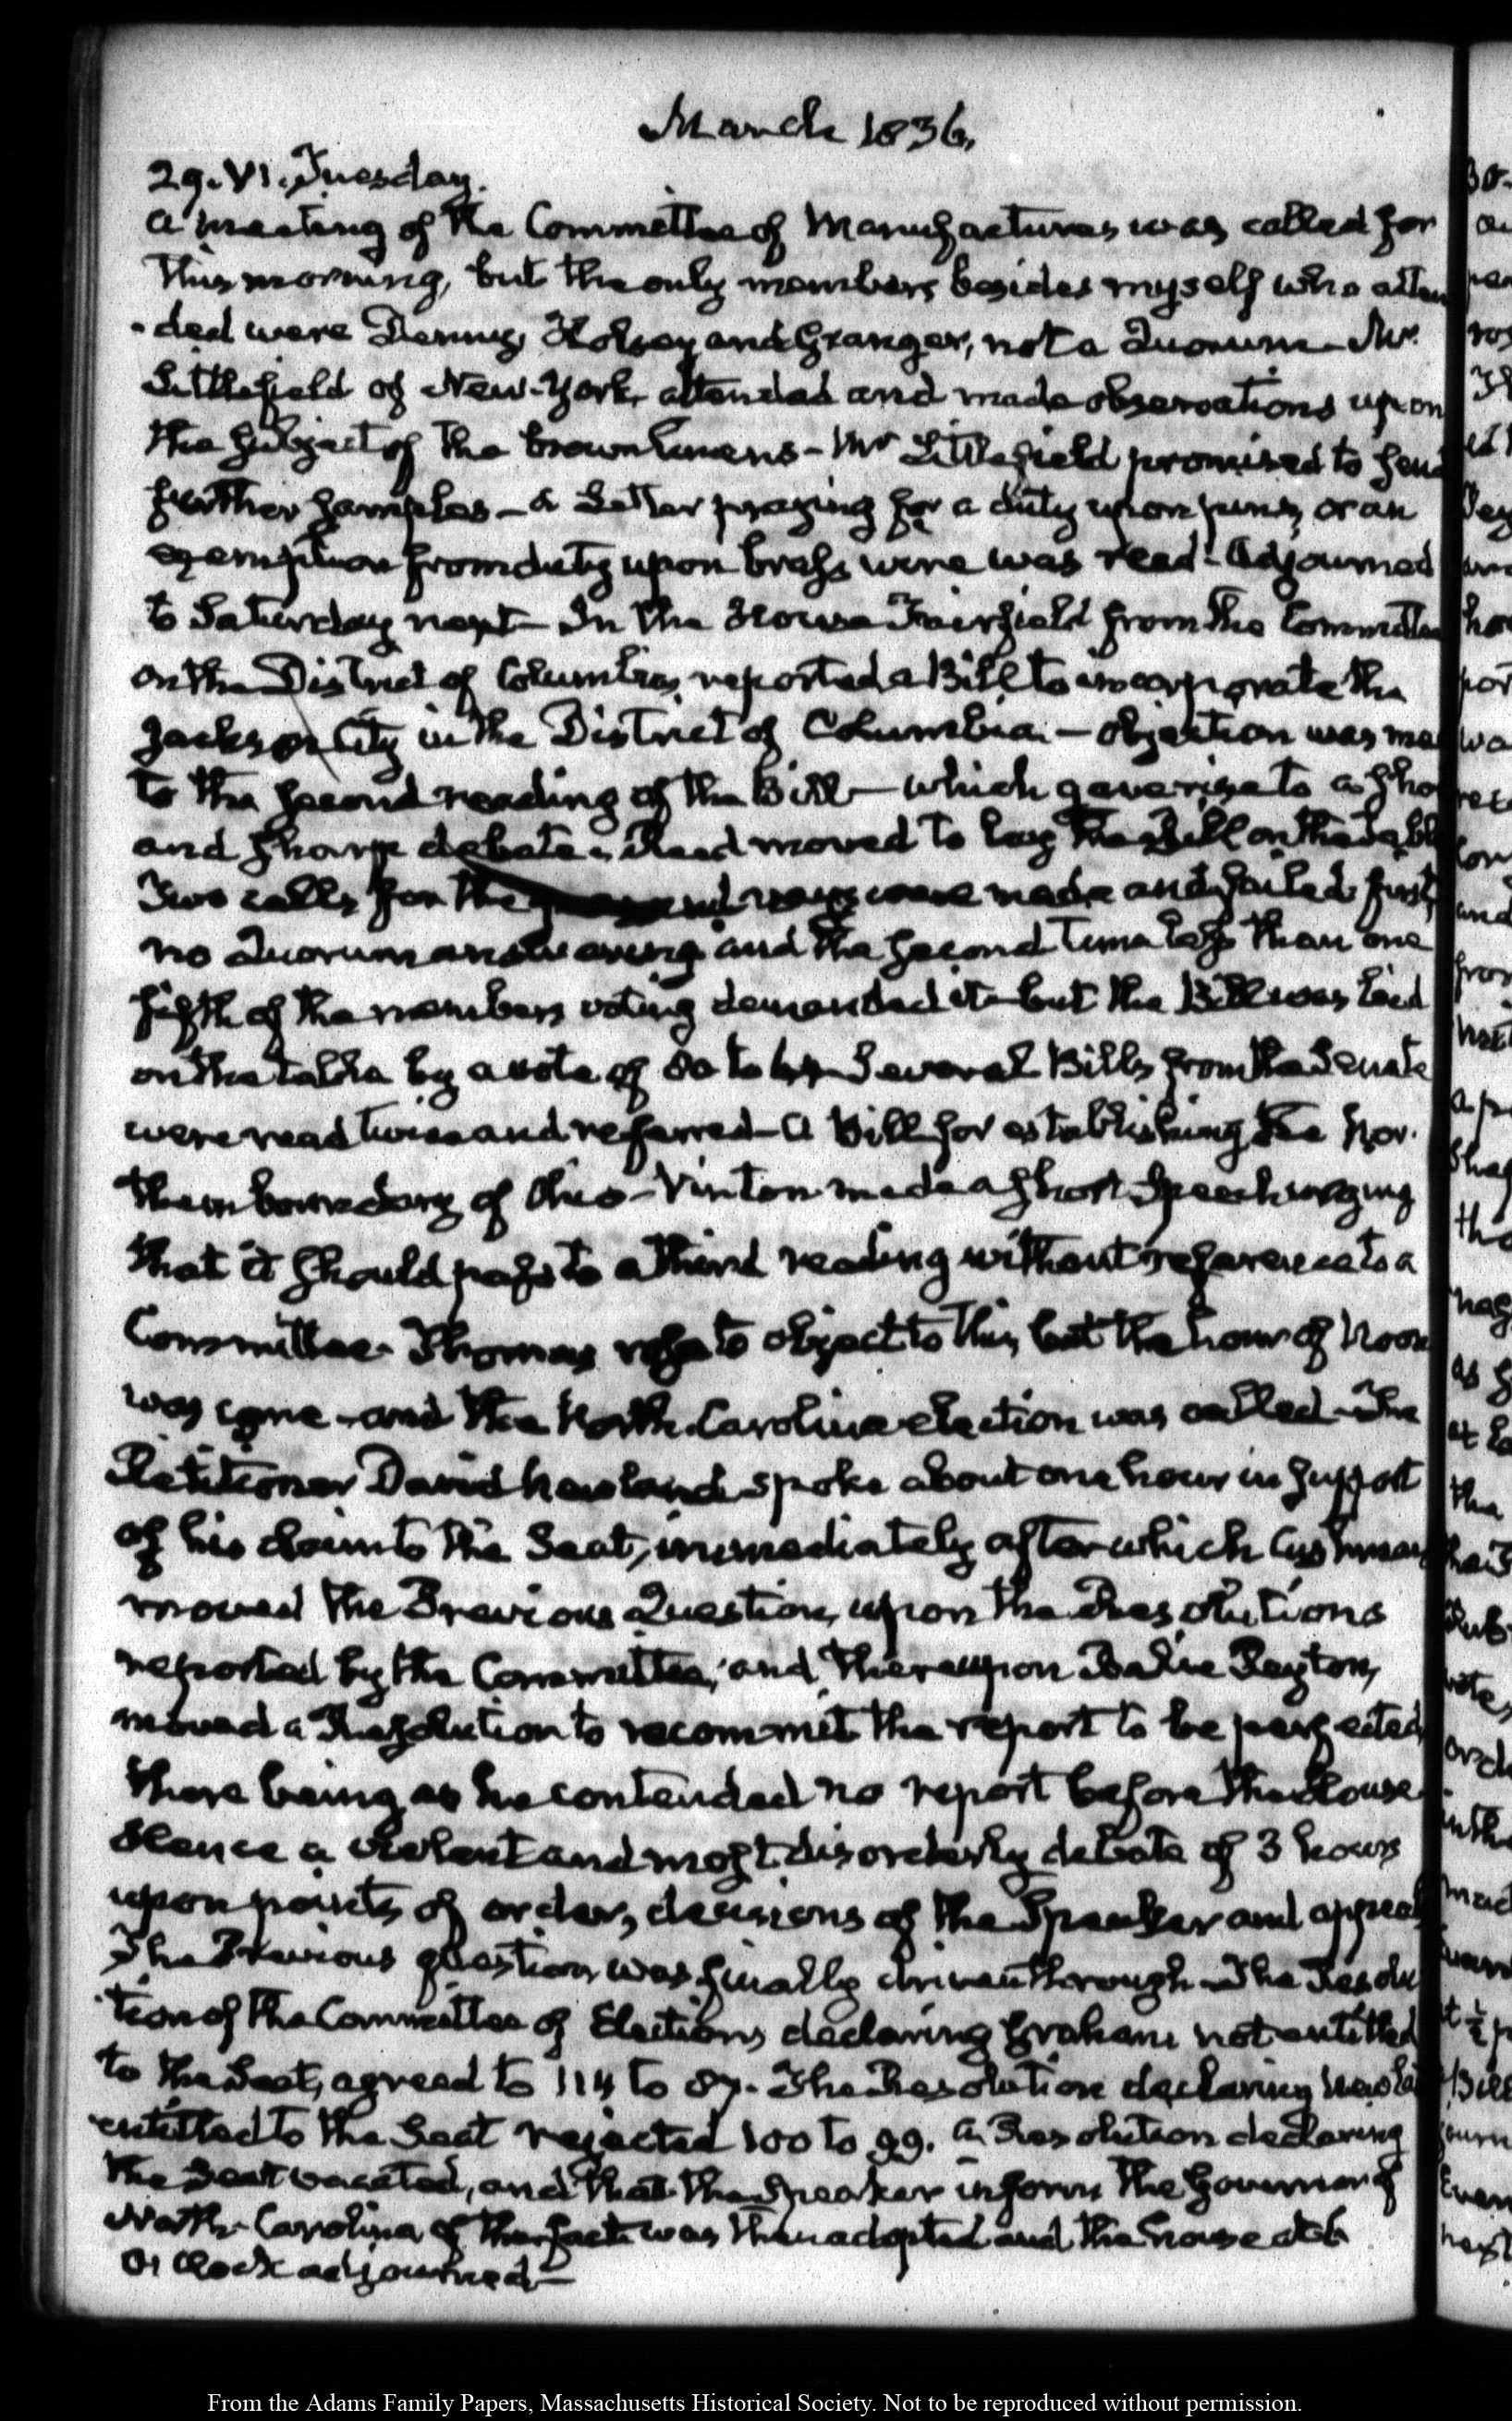 March 1836.
29. VI. Tuesday.
A meeting of the Committee of Manufactures was called for
this morning, but the only members besides myself who atten
ded were Denny, Halsey and Granger, not a Quorum — Mr.
Littlefield of New-York, attended and made observations upon
the subject of the brown linens — Mr Littlefield promised to send
further samples — a Letter praying for a duty upon pins, or an
exemption from duty upon brass wire was read — Adjourned
to Saturday next — In the House Fairfield from the Committee
on the District of Columbia, reported a Bill to incorporate the
Jackson City in the District of Columbia. — objection was ma
to the second reading of the Bill — which gave rise to a sho
and sharp debate. Reed moved to lay the Bill on the table
Two calls for the yeas and nays were made and failed first,
no Quorum answering and the second time less than one
fifth of the members voting demanded it — but the Bill was laid
on the table by a vote of 80 to Several Bills from the Senate
were read twice and referred — A Bill for establishing the Nor.
thern boundary of Ohio — Vinton made a short speech urging
that it should pass to a third reading without reference to a
Committee. Thomas rose to object to this, but the hour of Noon
was come — and the North-Carolina election was called — The
Petitioner David Newland spoke about one hour in support
of his claim to the Seat, immediately after which Cushman
moved the Previous Question, upon the Resolutions
reported by the Committee, and thereupon Balie Peyton,
moved a Resolution to recommit the report to be perfected
there being as he contended no report before the House.
Hence a violent and most disorderly debate of 3 hours
upon points of order, decisions of the Speaker and appeal
The Previous question was finally driven through — The Resolu
tion of the Committee of Elections, declaring Graham not entitled
to the Seat, agreed to 114 to 87. The Resolution declaring Newla
entitled to the Seat rejected 100 to 99. A Resolution declaring
the Seat vacated, and that the Speaker inform the Governor of
North-Carolina of the fact was then adopted and the house at 6
O'Clock adjourned —
From the Adams Family Papers, Massachusetts Historical Society. Not to be reproduced without permission.